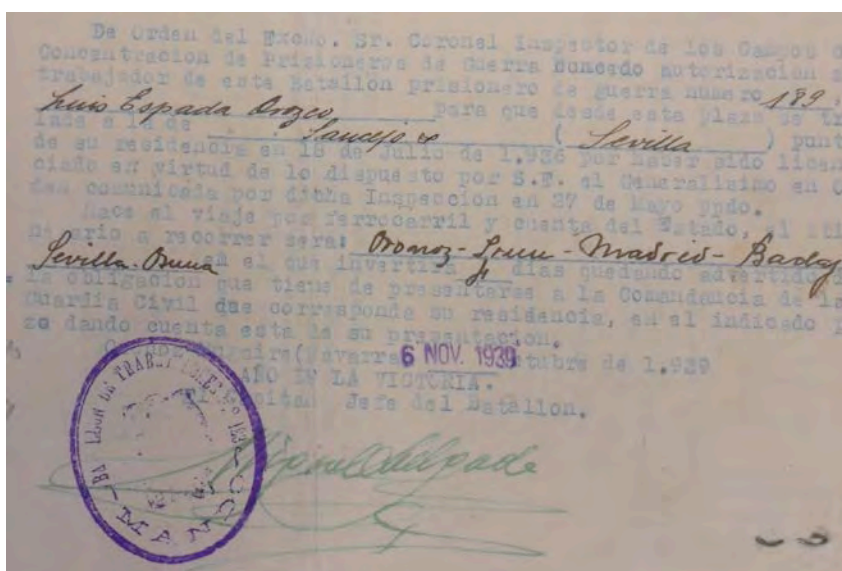 De Orden del Excmo. Sr. Coronel Inspector de los Campos
Concentracion de Prisioneros de Guerra concedo autorizacion
trabajador de este Batallon prisionero de guerra numero 189,
Luis Espada Orozco para que desde esta plaza se tr
lade a la de Saucejo ( Sevilla ) punt
de su residencia en 18 de Julio de 1.936 por haber sido licen
ciado en virtud de lo dispuesto por S.E. el Generalisimo en O
den comunicada por dicha Inspeccion en 27 de Mayo ppdo.
Hace el viaje por ferrocarril y cuenta del Estado, el iti
nerario a recorrer sera: Oronoz-Irun-Madrid-Badaj
Sevilla-Osuna en el que invertira dias quedando advertido
la obligacion que tiene de presentarse a la Comandancia de la
Guardia Civil que corresponda su residencia, en el indicado
zo dando cuenta esta de su presentacion.
6 NOV. 1939 ctubre de 1.939
AÑO DE LA VICTORIA.
El Capitan Jefe del Batallon.
Miguel Delgado